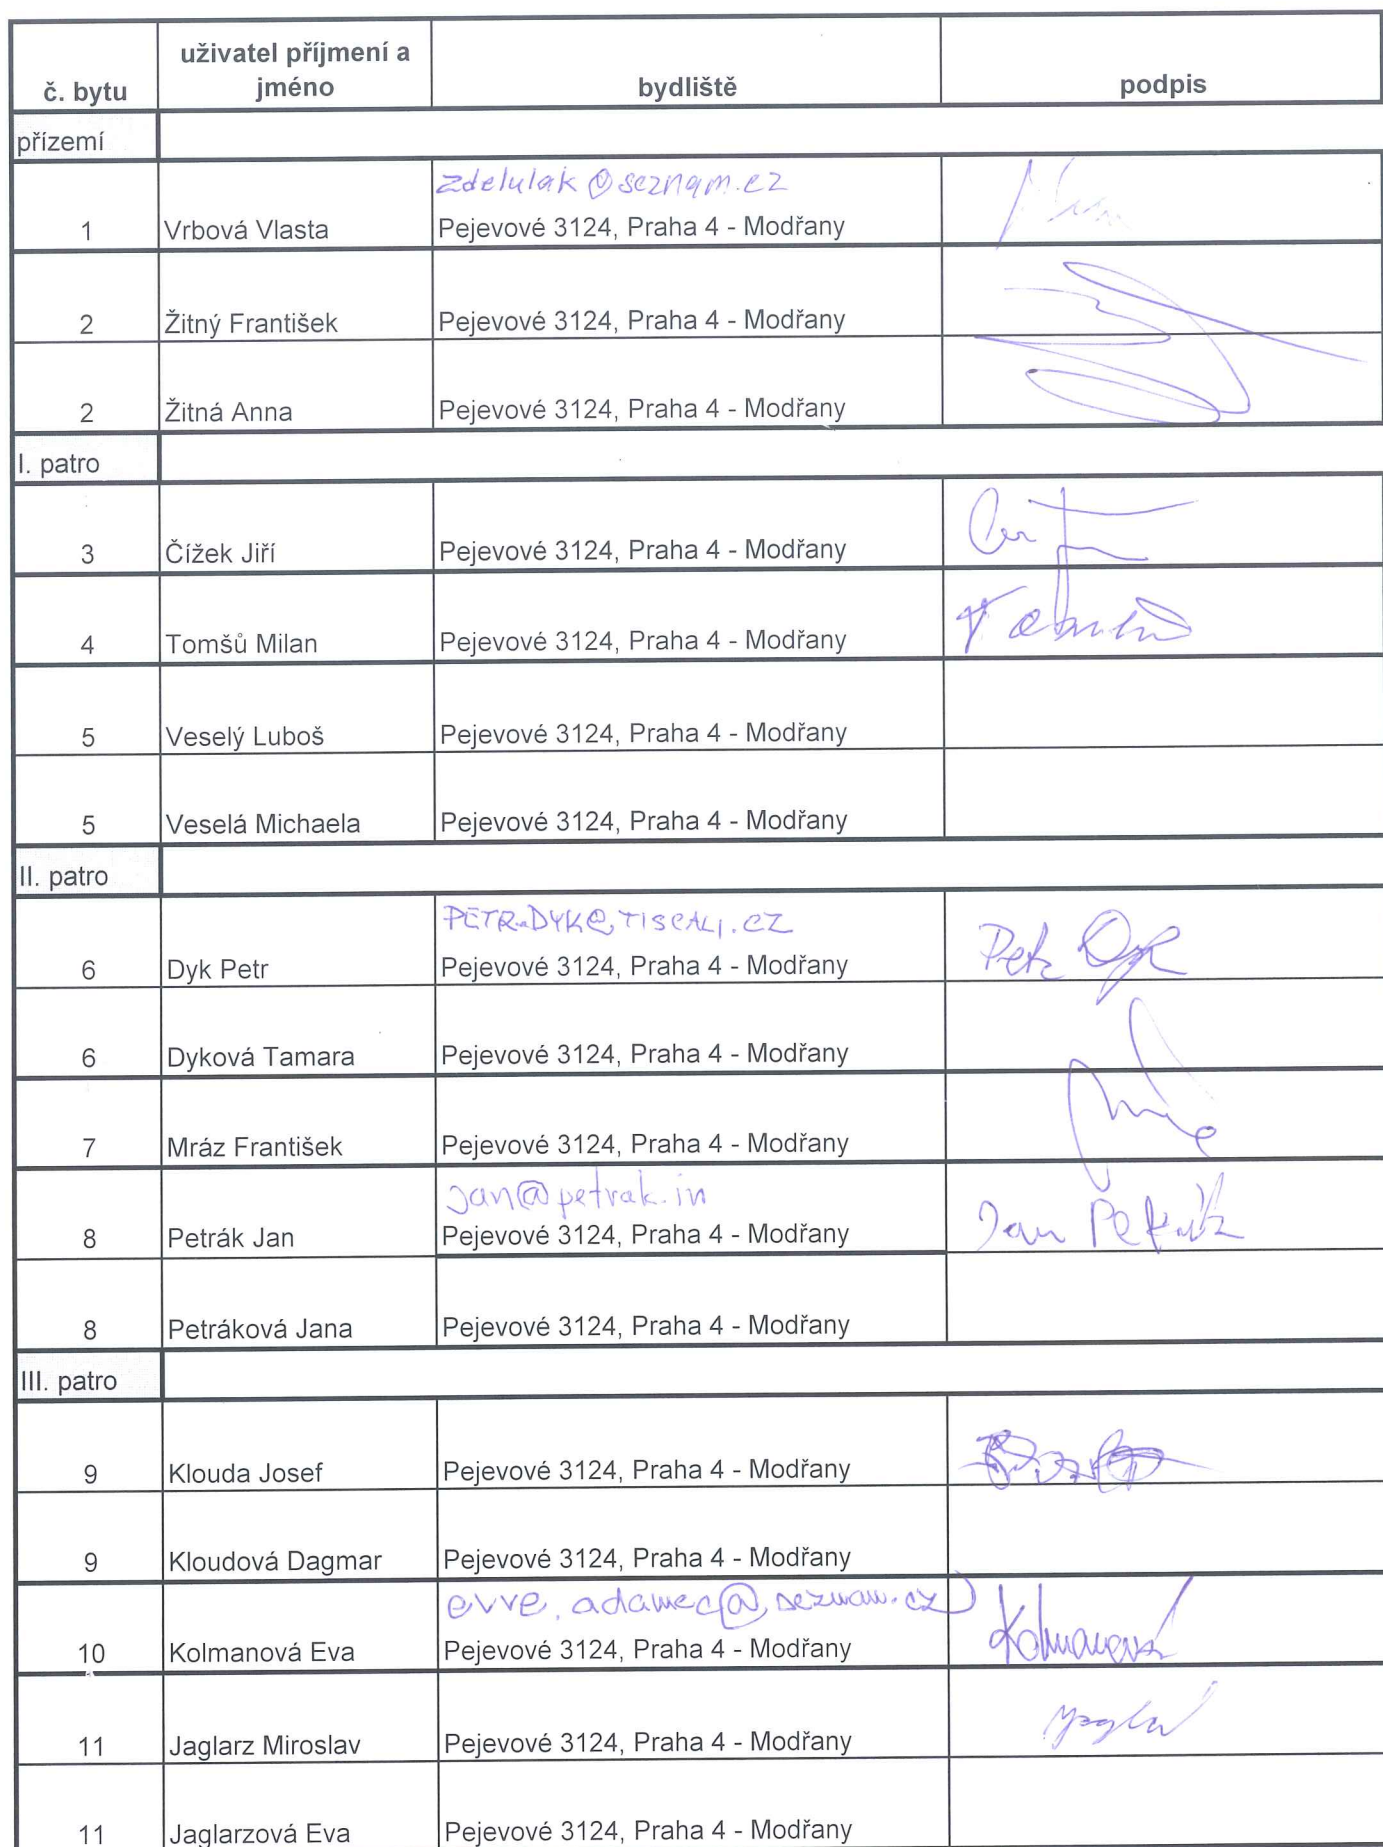 č. bytu uživatel příjmení a jméno bydliště podpis
přízemí
zdelulak@seznam.cz
1 Vrbová Vlasta Pejevové 3124, Praha 4 - Modřany
2 Žitný František Pejevové 3124, Praha 4 - Modřany
2 Žitná Anna Pejevové 3124, Praha 4 - Modřany
I. patro
3 Čížek Jiří Pejevové 3124, Praha 4 - Modřany
4 Tomšů Milan Pejevové 3124, Praha 4 - Modřany
5 Veselý Luboš Pejevové 3124, Praha 4 - Modřany
5 Veselá Michaela Pejevové 3124, Praha 4 - Modřany
II. patro
PETR.DYK@TISCALI.CZ
6 Dyk Petr Pejevové 3124, Praha 4 - Modřany Petr Dyk
6 Dyková Tamara Pejevové 3124, Praha 4 - Modřany
7 Mráz František Pejevové 3124, Praha 4 - Modřany
jan@petrak.in
8 Petrák Jan Pejevové 3124, Praha 4 - Modřany Jan Petrák
8 Petráková Jana Pejevové 3124, Praha 4 - Modřany
III. patro
9 Klouda Josef Pejevové 3124, Praha 4 - Modřany
9 Kloudová Dagmar Pejevové 3124, Praha 4 - Modřany
evve.adamec@seznam.cz
10 Kolmanová Eva Pejevové 3124, Praha 4 - Modřany Kolmanová
11 Jaglarz Miroslav Pejevové 3124, Praha 4 - Modřany
11 Jaglarzová Eva Pejevové 3124, Praha 4 - Modřany